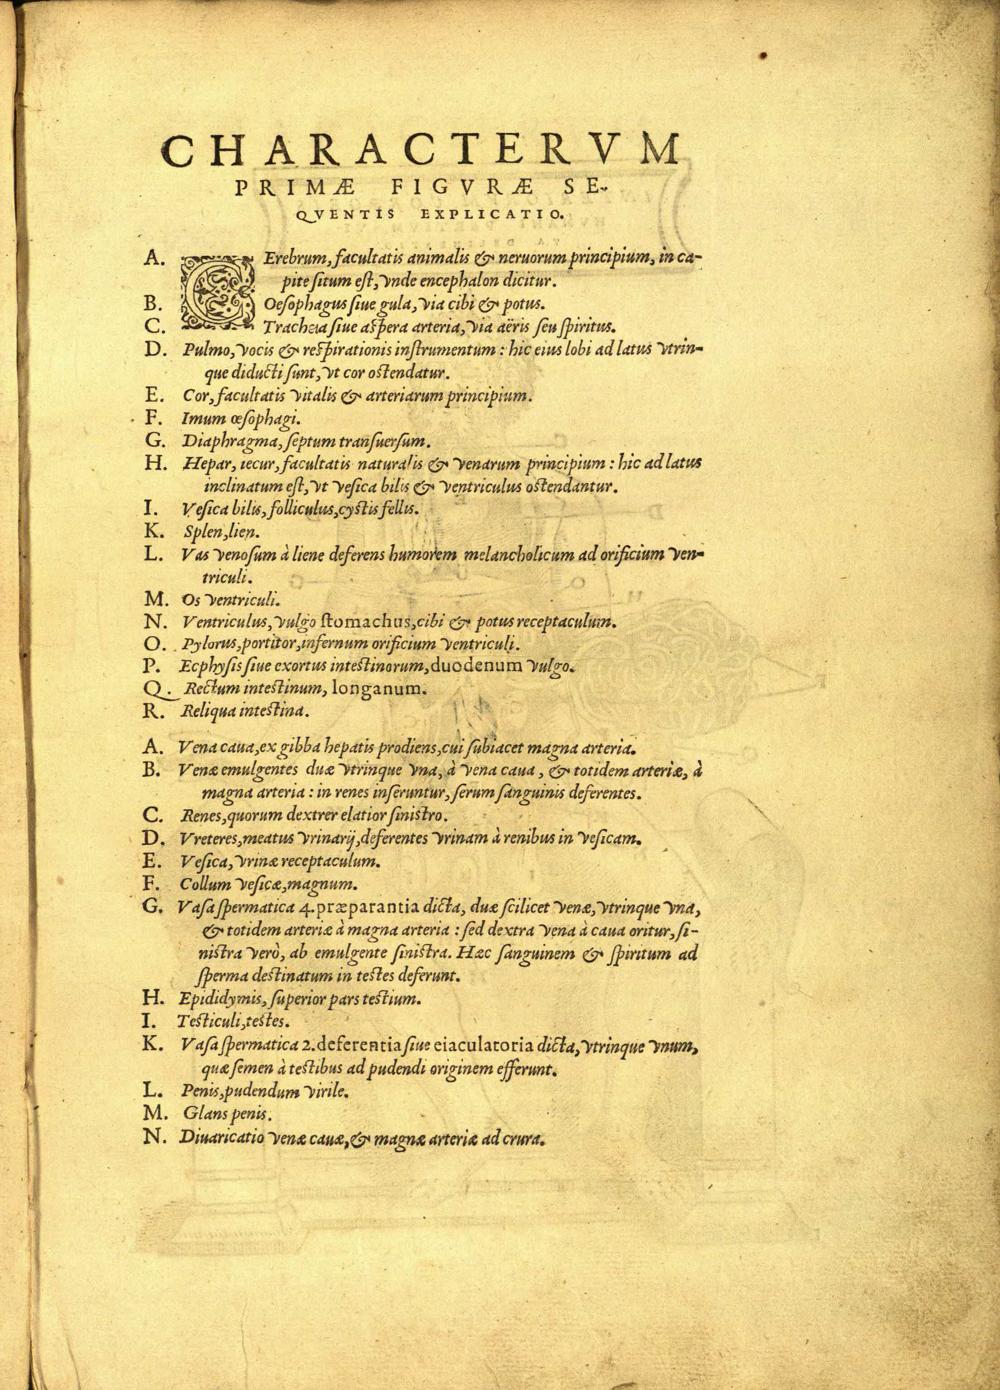 CHARACTERVM
PRIMÆ FIGVRÆ SE-
QVENTIS EXPLICATIO.
A. CErebrum, facultatis animalis & neruorum principium, in ca-
pite situm est, vnde encephalon dicitur.
B. Oesophagus siue gula, via cibi & potus.
C. Tracheia siue aspera arteria, via aëris seu spiritus.
D. Pulmo, vocis & respirationis instrumentum : hic eius lobi ad latus vtrin-
que diducti sunt, vt cor ostendatur.
E. Cor, facultatis vitalis & arteriarum principium.
F. Imum œsophagi.
G. Diaphragma, septum transuersum.
H. Hepar, iecur, facultatis naturalis & venarum principium : hic ad latus
inclinatum est, vt vesica bilis & ventriculus ostendantur.
I. Vesica bilis, folliculus, cystis fellis.
K. Splen, lien.
L. Vas venosum à liene deferens humorem melancholicum ad orificium ven-
triculi.
M. Os ventriculi.
N. Ventriculus, vulgo stomachus, cibi & potus receptaculum.
O. Pylorus, portitor, infernum orificium ventriculi.
P. Ecphysis siue exortus intestinorum, duodenum vulgo.
Q. Rectum intestinum, longanum.
R. Reliqua intestina.
A. Vena caua, ex gibba hepatis prodiens, cui subiacet magna arteria.
B. Venæ emulgentes duæ vtrinque vna, à vena caua, & totidem arteriæ, à
magna arteria : in renes inseruntur, serum sanguinis deferentes.
C. Renes, quorum dextrer elatior sinistro.
D. Vreteres, meatus vrinarij, deferentes vrinam à renibus in vesicam.
E. Vesica, vrinæ receptaculum.
F. Collum vesicæ, magnum.
G. Vasa spermatica 4. præparantia dicta, duæ scilicet venæ, vtrinque vna,
& totidem arteriæ à magna arteria : sed dextra vena à caua oritur, si-
nistra verò, ab emulgente sinistra. Hæc sanguinem & spiritum ad
sperma destinatum in testes deferunt.
H. Epididymis, superior pars testium.
I. Testiculi, testes.
K. Vasa spermatica 2. deferentia siue eiaculatoria dicta, vtrinque vnum,
quæ semen à testibus ad pudendi originem efferunt.
L. Penis, pudendum virile.
M. Glans penis.
N. Diuaricatio venæ cauæ, & magnæ arteriæ ad crura.